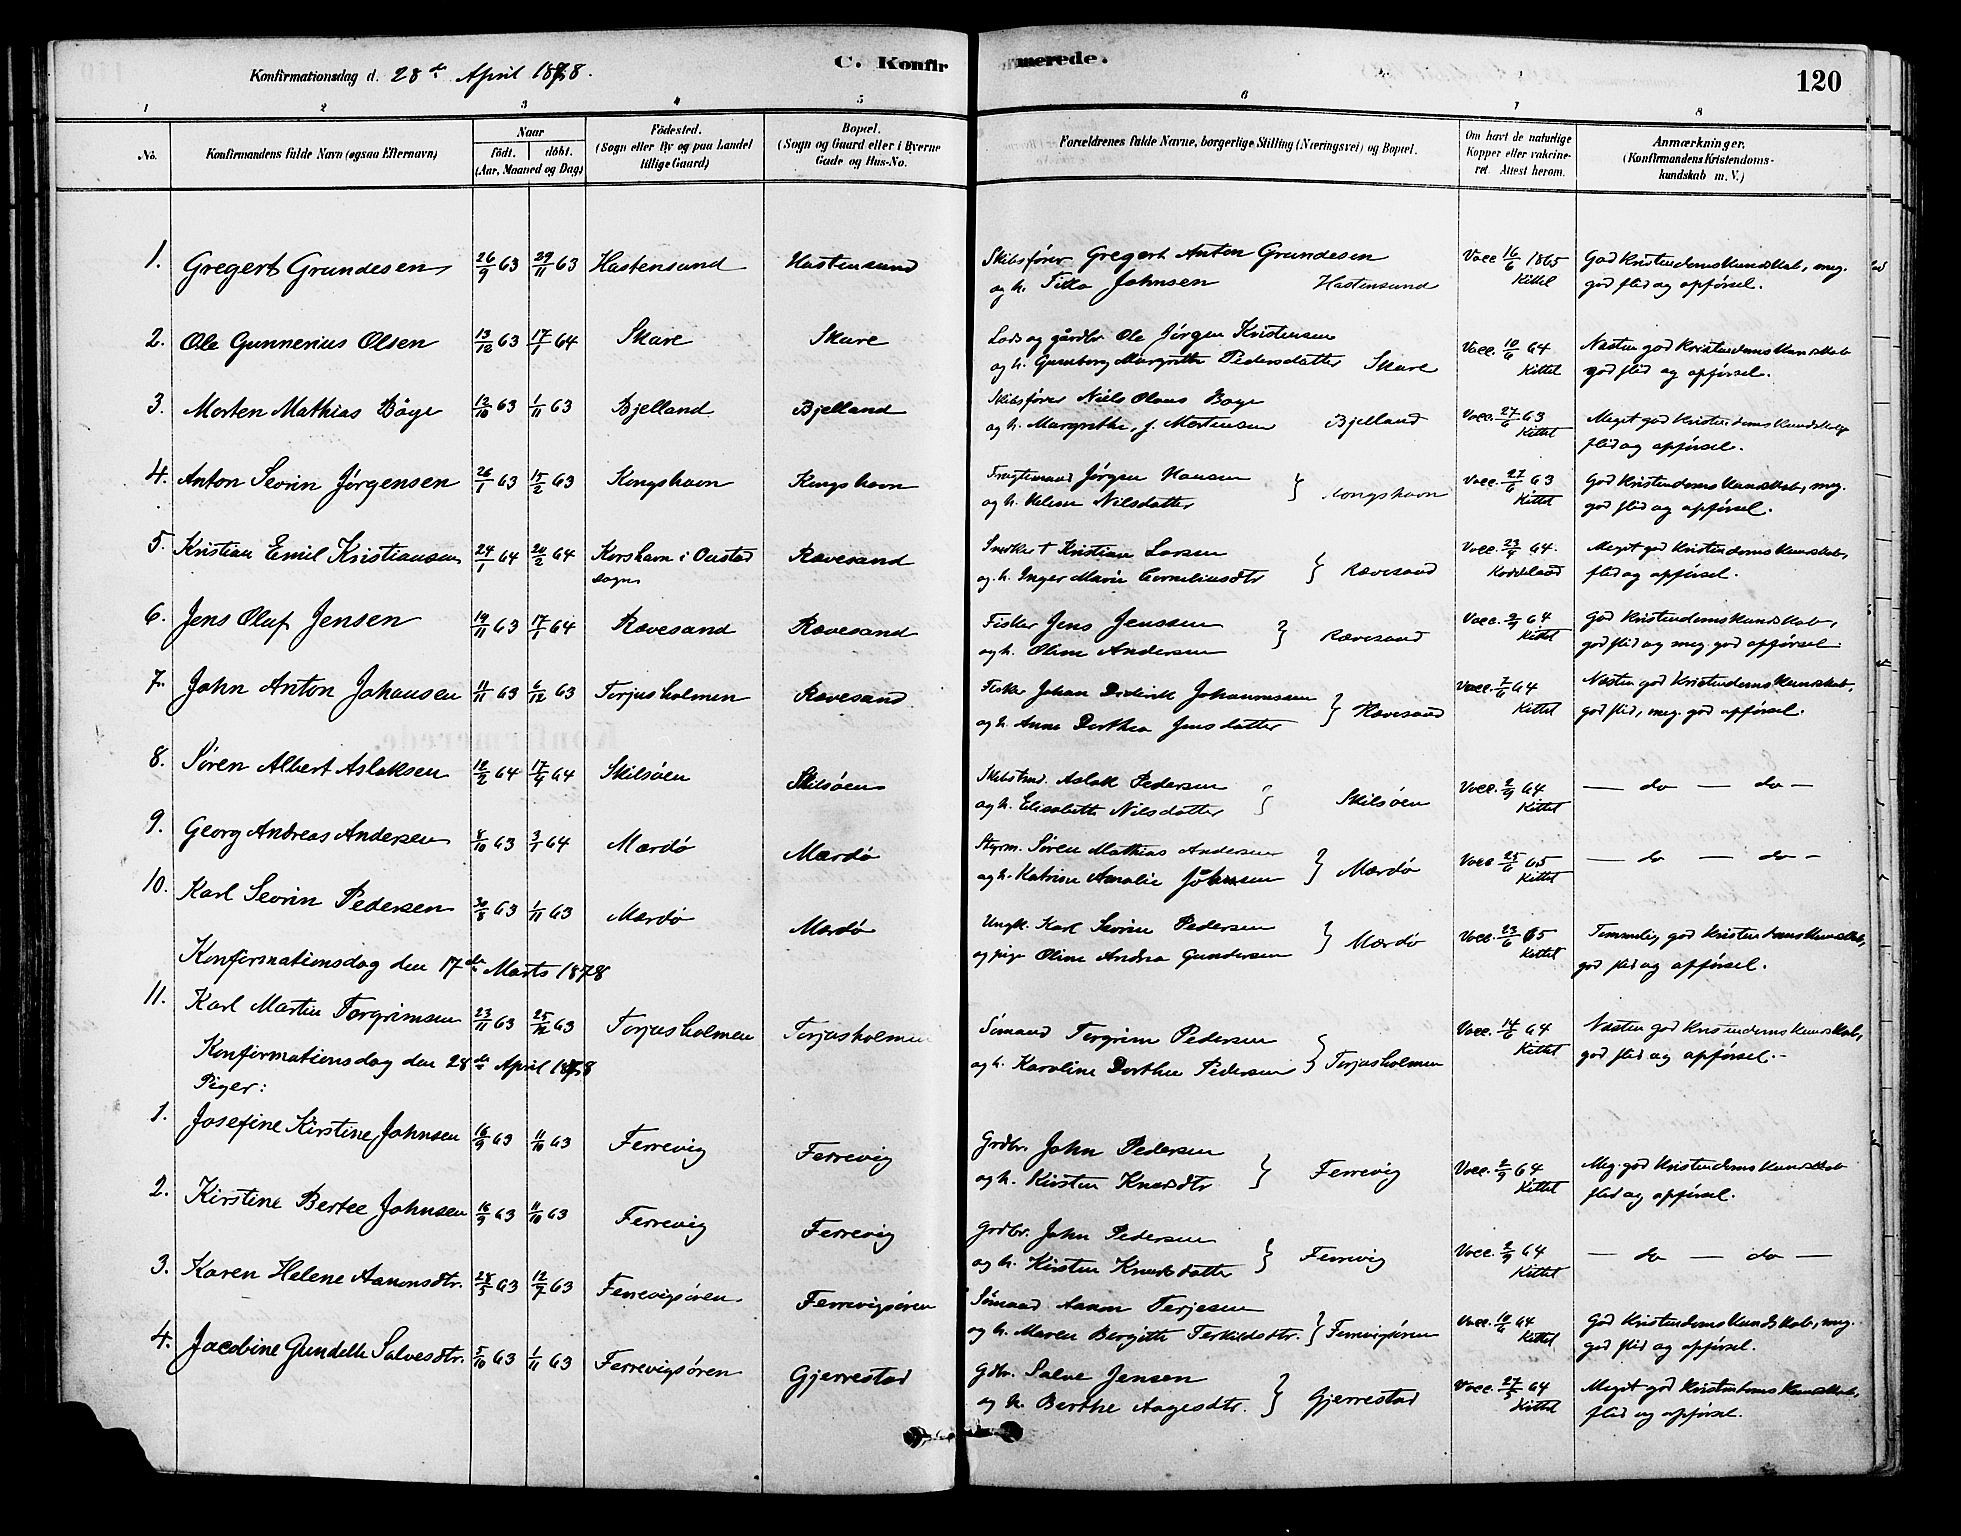 Konfirmationsdag d. 28de April 1878.
C. Konfirmerede.
120
1 2 3 4 5 6 7 8
No.
Konfirmandens fulde Navn (ogsaa Efternavn)
Naar
födt. döbt.
(Aar, Maaned og Dag)
Födested.
(Sogn eller By og paa Landet
tillige Gaard)
Bopæl.
(Sogn og Gaard eller i Byerne
Gade og Hus-No.
Forældrenes fulde Navne, borgerlige Stilling (Næringsvei) og Bopæl.
Om havt de naturlige
Kopper eller vakcine-
ret. Attest herom.
Anmærkninger.
(Konfirmandens Kristendoms-
kundskab m. V.)
1. Gregert Grundesen 26/9 63 29/11 63 Hastensund Hastensund Skibsfører Gregert Anton Grundesen Vacc 16/6 1865 God Kristendomskundskab, meg.
og h. Johnsen Hastensund Kittel god flid og opførsel.
2. Ole Gunnerius Olsen 13/12 63 17/1 64 Skare Skare Lods og gårdbr Ole Jörgen Kristensen Vacc. 10/6 64 Næsten god Kristendomskundskab
og h. Gunborg Margrethe Pedersdatter Skare Kittel god flid og opførsel.
3. Morten Mathias Böye 12/10 63 1/11 63 Bjelland Bjelland Skibsfører Niels Olaus Boye Vacc. 27/6 63 Meget god Kristendomskundskab
og h. Margrethe, f. Mortensen Bjelland Kittel flid og opførsel.
4. Anton Sevrin Jörgensen 26/1 63 15/2 63 Kongshavn Kongshavn Jörgen Hansen Vacc. 27/6 63 God Kristendomskundskab, meg.
og h. Helene Nilsdatter Kongshavn Kittel god flid og opførsel.
5. Kristian Emil Kristiansen 24/1 64 20/2 64 Korshavn i Oustad Rævesand Snedker † Kristian Larsen Vacc. 23/9 64. Meget god Kristendomskundskab,
sogn og h. Inger Marie Corneliusdtr Rævesand flid og opførsel.
6. Jens Oluf Jensen 19/11 63 17/1 64 Rævesand Rævesand Fisker Jens Jenssen Vacc. 2/9 64 God Kristendomskundskab,
og h. Oline Andersen Rævesand Kittel god flid og meg. god opførsel.
7. John Anton Johansen 11/11 63 6/12 63 Torjusholmen Rævesand Fisker Johan Diderik Johannessen Vacc. 7/6 64 Næsten god Kristendomskundskab,
og h. Anne Dorthea Jensdatter Rævesand Kittel god flid, meg. god opførsel.
8. Sören Albert Aslaksen 12/2 64 17/4 64 Skilsöen Skilsöen Skibstmd. Aslak Pedersen Vacc. 2/9 64 — do — do —
og h. Elisabeth Nilsdatter Skilsöen Kittel
9. Georg Andreas Andersen 8/10 63 3/1 64 Mærdø Mærdø Styrm. Sören Mathias Andersen Vacc 25/6 65 — do — do —
og h. Katrine Amalie Johnsen Mærdø Kittel
10. Karl Sevrin Pedersen 30/8 63 1/11 63 Mærdø Mærdø Ungk. Karl Sevrin Pedersen Vacc. 23/6 65 Temmelig god Kristendomskundskab,
og pige Oline Andrea Gundersen Mærdø Kittel god flid og opførsel.
Konfirmationsdag den 17de Marts 1878
11. Karl Martin Torgrimsen 23/11 63 25/12 63 Torjusholmen Torjusholmen Sömand Torgrim Pedersen Vacc. 14/6 64 Næsten god Kristendomskundskab,
og h. Karoline Dorthea Pedersen Torjusholmen Kittel god flid og opførsel.
Konfirmationsdag den 28de April 1878
Piger:
1. Josefine Kirstine Johnsen 16/9 63 11/10 63 Ferrevig Ferrevig Grdbr. John Pedersen Vacc. 2/9 64 Meg. god Kristendomskundskab
og h. Kirsten Knudsdtr Ferrevig Kittel flid og opførsel.
2. Kirstine Bertee Johnsen 16/9 63 11/10 63 Ferrevig Ferrevig Grdbr. John Pedersen Vacc. 2/9 64 — do — do —
og h. Kirsten Knudsdatter Ferrevig Kittel
3. Karen Helene Aanonsdtr. 28/5 63 12/7 63 Ferrevigsören Ferrevigsören Sömand Aanon Terjesen Vacc. 10/6 64 God Kristendomskundskab, meg.
og h. Maren Bergitte Terkildsdtr. Ferrevigsören Kittel god flid og opførsel.
4. Jacobine Gundelle Salvesdtr. 5/10 63 1/11 63 Ferrevigsören Gjerrestad Gdbr. Salve Jensen Vacc. 27/5 64 Meget god Kristendomskundskab,
og h. Berthe Aagesdtr. Gjerrestad Kittel flid og opførsel.